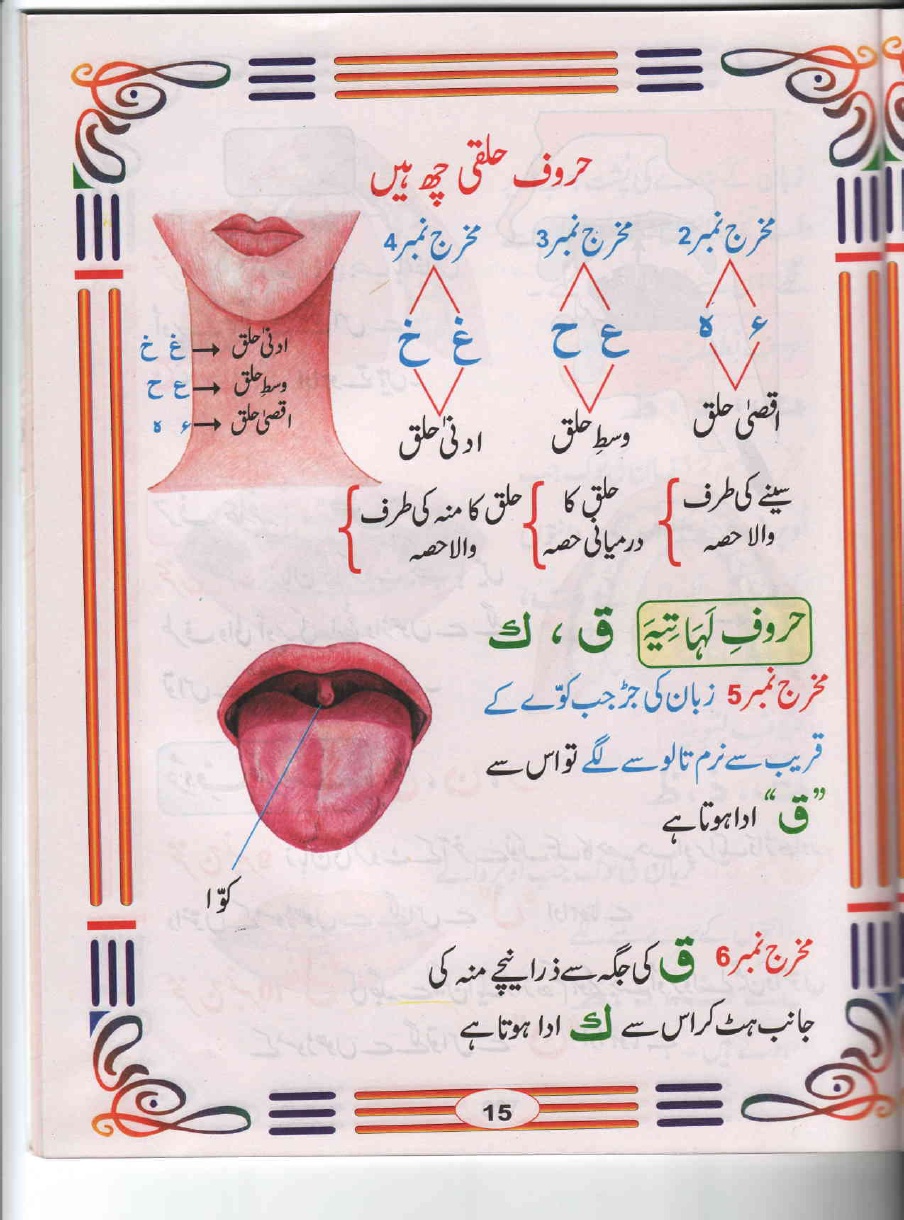 حروف حلقی چھ ہیں
مخرج نمبر2 مخرج نمبر3 مخرج نمبر4
ء ہ ع ح غ خ
اقصیٰ حلق وسطِ حلق ادنیٰ حلق
سینے کی طرف والا حصہ
حلق کا درمیانی حصہ
حلق کا منہ کی طرف والا حصہ
ادنیٰ حلق غ خ
وسطِ حلق ع ح
اقصیٰ حلق ء ہ
حروفِ لَہَاتِیَہ ق ، ك
مخرج نمبر5 زبان کی جڑ جب کوّے کے
قریب سے نرم تالو سے لگے تو اس سے
”ق“ ادا ہوتا ہے
کوّا
مخرج نمبر6 ق کی جگہ سے ذرا نیچے منہ کی
جانب ہٹ کر اس سے ك ادا ہوتا ہے
15